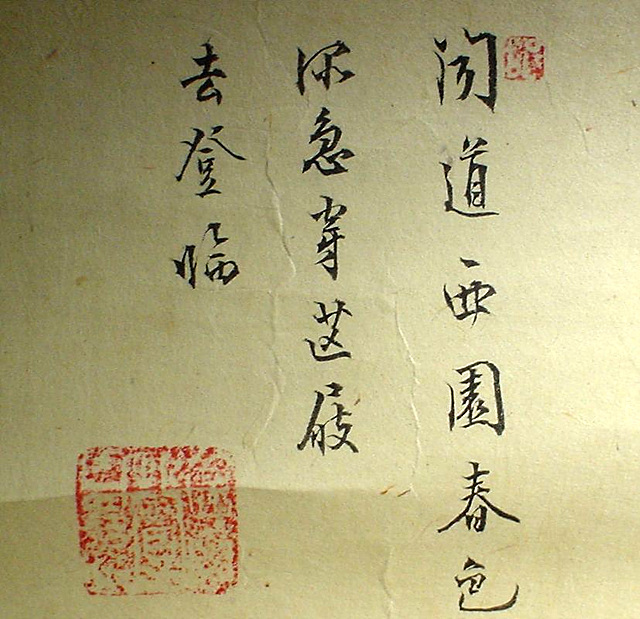 聞道西園春色
深急穿芒屐
去登臨